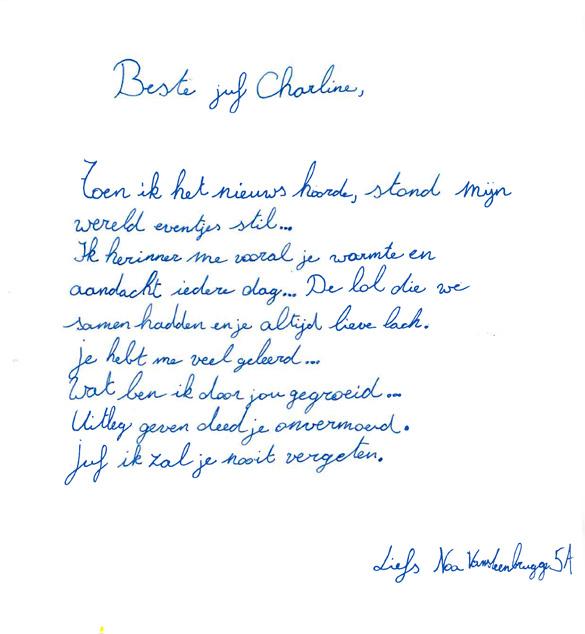 Beste juf Charline,
Toen ik het nieuws hoorde, stond mijn
wereld eventjes stil...
Ik herinner me vooral je warmte en
aandacht iedere dag... De lol die we
samen hadden en je altijd lieve lach.
Je hebt me veel geleerd...
Wat ben ik door jou gegroeid...
Uitleg geven deed je onvermoeid.
Juf ik zal je nooit vergeten.
Liefs Noa Vansteenbrugge 5A